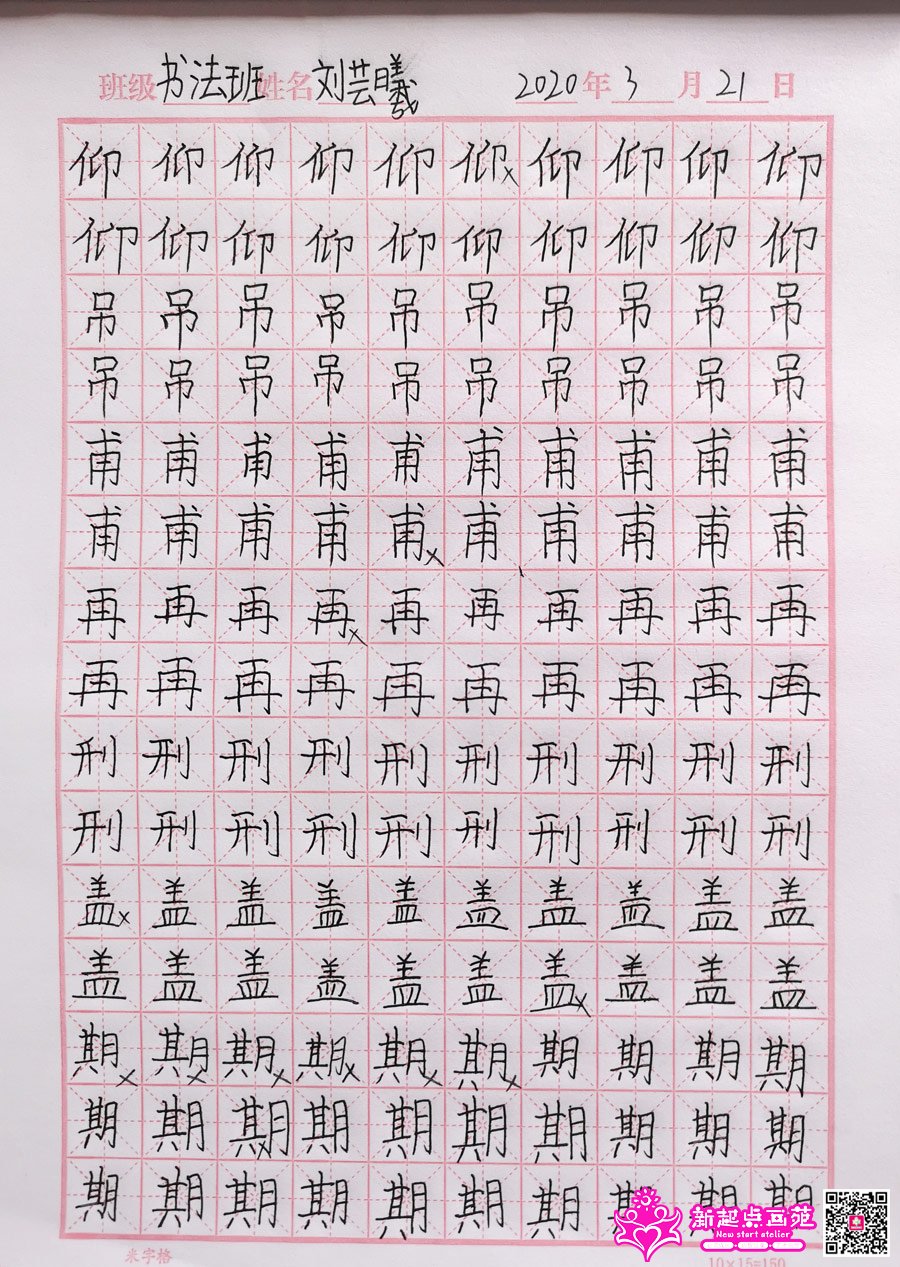 班级 书法班 姓名 刘芸曦 2020 年 3 月 21 日
仰 仰 仰 仰 仰 仰 × 仰 仰 仰 仰
仰 仰 仰 仰 仰 仰 仰 仰 仰 仰
吊 吊 吊 吊 吊 吊 吊 吊 吊 吊
吊 吊 吊 吊 吊 吊 吊 吊 吊 吊
甫 甫 甫 甫 甫 甫 甫 甫 甫 甫
甫 甫 甫 甫 甫 × 甫 甫 甫 甫 甫
再 再 再 再 × 再 再 再 再 再 再
再 再 再 再 再 再 再 再 再 再
刑 刑 刑 刑 刑 刑 刑 刑 刑 刑
刑 刑 刑 刑 刑 刑 刑 刑 刑 刑
盖 × 盖 盖 盖 盖 盖 盖 盖 盖 盖
盖 盖 盖 盖 盖 盖 盖 × 盖 盖 盖
期 × 期 × 期 × 期 × 期 × 期 × 期 期 期 期
期 期 期 × 期 期 期 期 期 期 期
期 期 期 期 期 期 期 期 期 期
新起点画苑
New start atelier
米字格 10×15=150